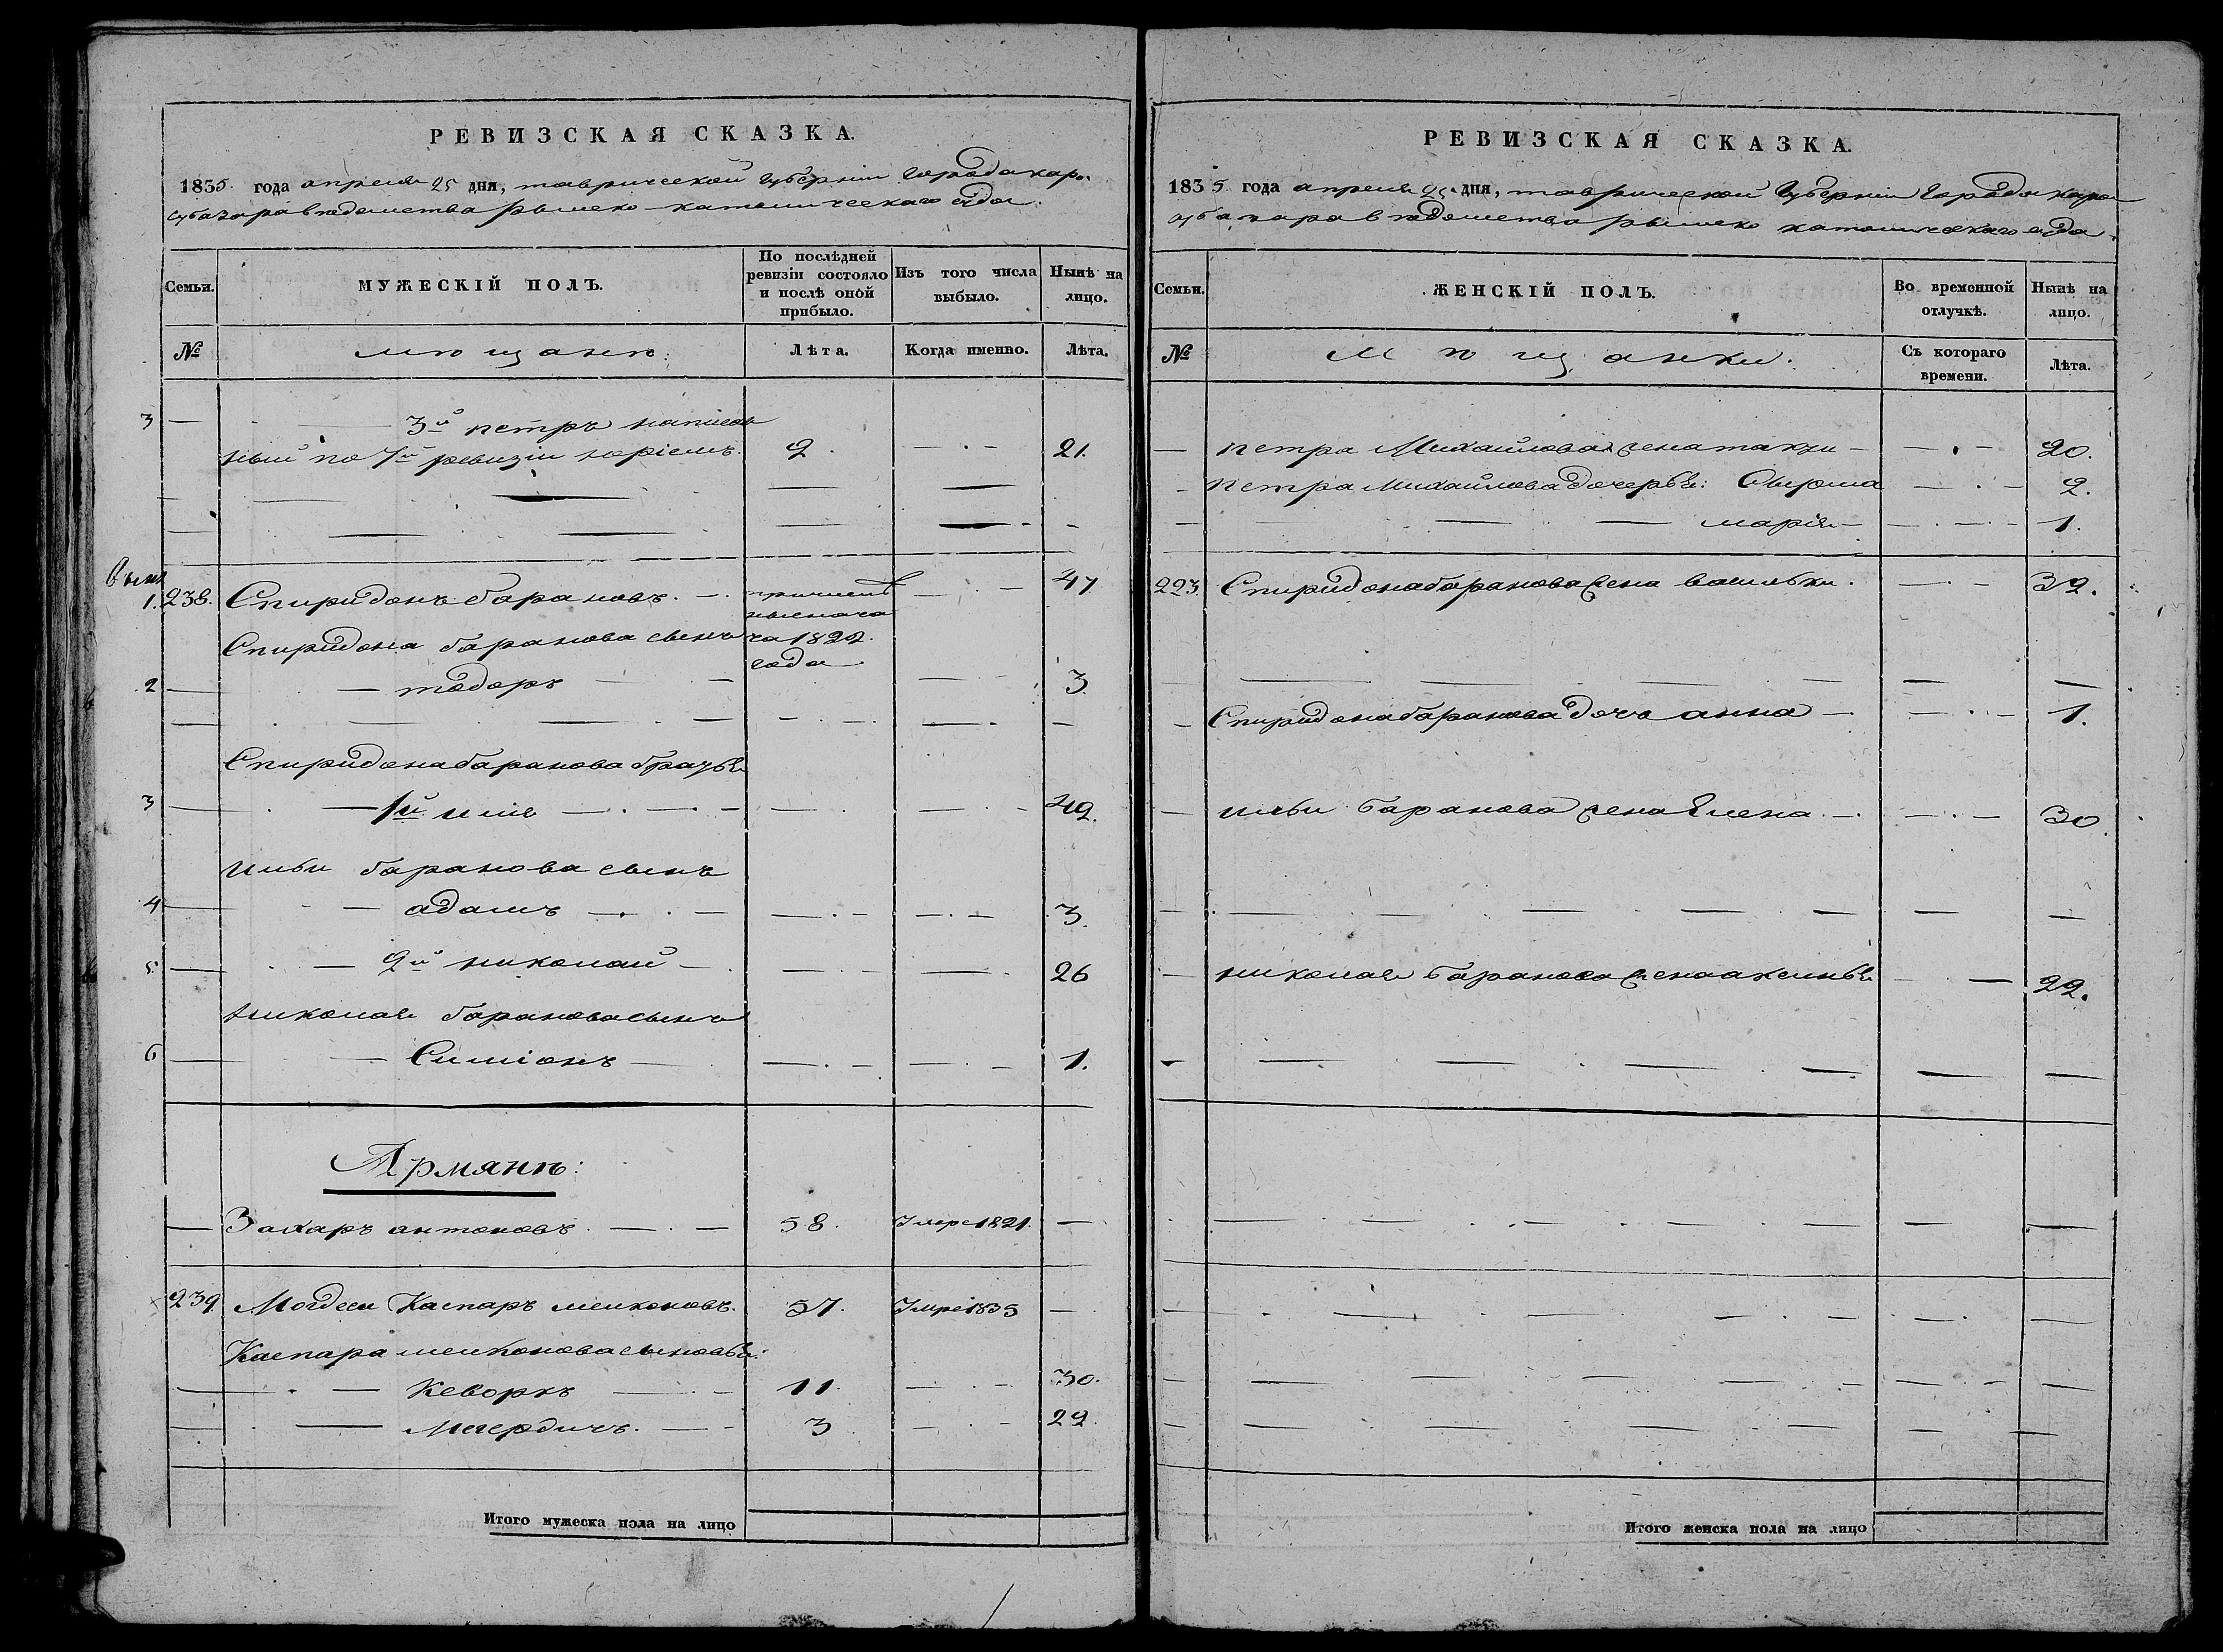 РЕВИЗСКАЯ СКАЗКА.
1835 года апреля 25 дня, таврической Губерніи Города кара-
субазара ведомства рымско-католическаго суда.
Семьи.
МУЖЕСКІЙ ПОЛЪ.
По послѣдней ревизіи состояло и послѣ оной прибыло.
Изъ того числа выбыло.
Нынѣ на лицо.
№
мѣщанѣ:
Лѣта.
Когда именно.
Лѣта.
3 — 3й петръ написан
ный по 7й ревизіи 2. — 21.
1. 238. Спиридонъ барановъ. — 47
Спиридона баранова сынъ
1822 года
2 — тодоръ — 3
Спиридона баранова братья
3 — 1й илія — 42.
ильи баранова сынъ
4 — адамъ — 3.
5 — 2й николай — 26
николая баранова сынъ
6 — Симіонъ — 1.
Армянѣ:
— Захаръ антоновъ — 58. Умре 1821. —
239. Могдеси Каспаръ мелконовъ. 57. Умре 1835 —
Каспара мелконова сыновья:
— Кеворкъ — 11. — 30.
— Мегердичъ. — 3 — 22.
Итого мужеска пола на лицо
РЕВИЗСКАЯ СКАЗКА.
1835 года апреля 25 дня, таврической Губерніи Города кара
субазара ведомства рымско католическаго суда.
Семьи.
ЖЕНСКІЙ ПОЛЪ.
Во временной отлучкѣ.
Нынѣ на лицо.
№
Мѣщанки.
Съ котораго времени.
Лѣта.
— петра Михайлова жена — 20.
— петра михайлова дочерья: — 2.
— марія — 1.
223. Спиридона баранова жена василики. — 32.
— Спиридона баранова дочь анна — 1.
— ильи баранова жена Елена — 30.
— николая баранова жена аксинья — 22.
Итого женска пола на лицо